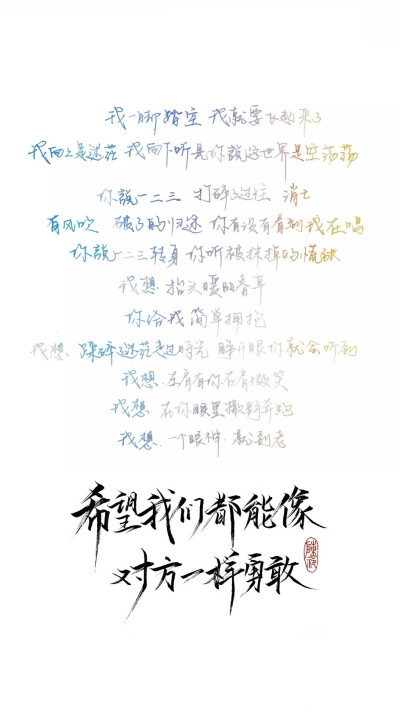 我一脚踏空 我就要飞起来了
我向上是迷茫 我向下听见你說这世界是空荡荡
你說一二三 打碎了过往 消亡
有风吹 破了的归途 你有没有看到我在唱
你說一二三转身 你听被抹掉的慌缺
我想 抬头暖阳春草
你给我简单拥抱
我想 踩碎迷茫走过时光 睁开眼你就会听到
我想 左肩有你右肩微笑
我想 在你眼里撒野奔跑
我想 一个眼神 就到老
希望我们都能像
对方一样勇敢